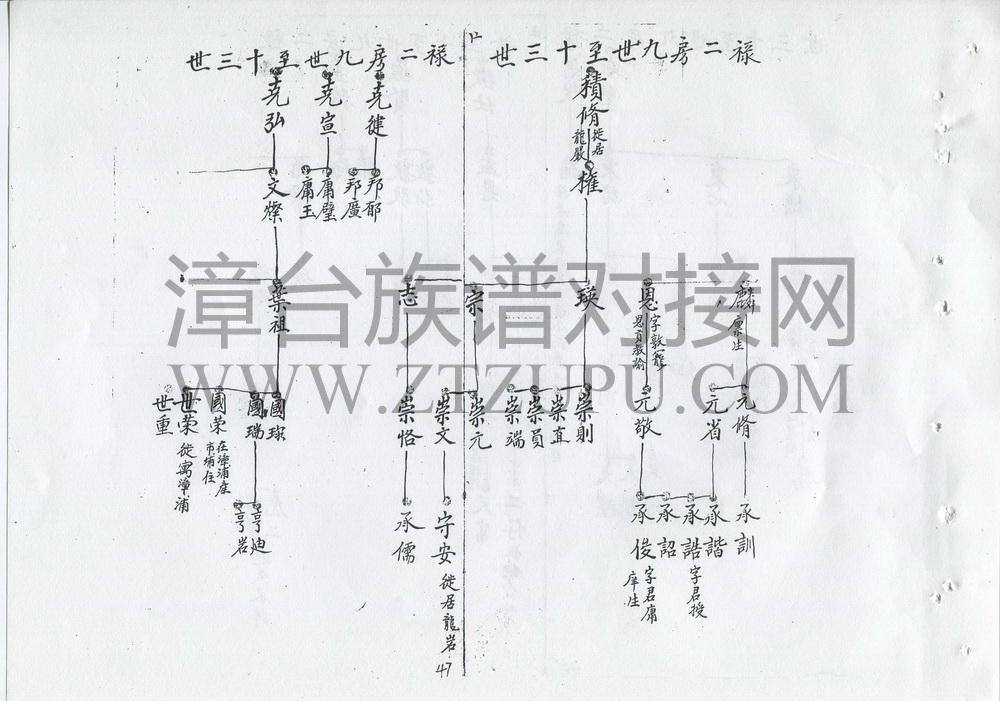 禄二房九世至十三世
積脩
徙居龍嚴
權
麟
廪生
恩
字敦寵
恩貢教諭
瑛
宗
志
元脩
元省
元敬
崇則
崇直
崇員
崇端
崇元
崇文
崇恪
承訓
承諧
承誥
字君授
承詔
承俊
字君庸
庠生
守安
徙居龍岩
承儒
47
禄二房九世至十三世
堯健
堯宣
堯弘
邦郁
邦廣
庸璧
庸玉
文燦
葉祖
國球
國瑞
國荣
世荣
徙寓漳浦
世重
亨迪
亨岩
漳台族谱对接网
WWW.ZTZUPU.COM